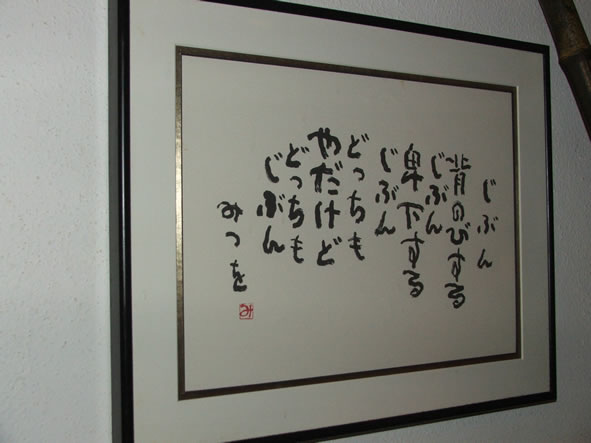 じぶん
背のびする
じぶん
卑下する
じぶん
どっちも
やだけど
どっちも
じぶん
みつを
み